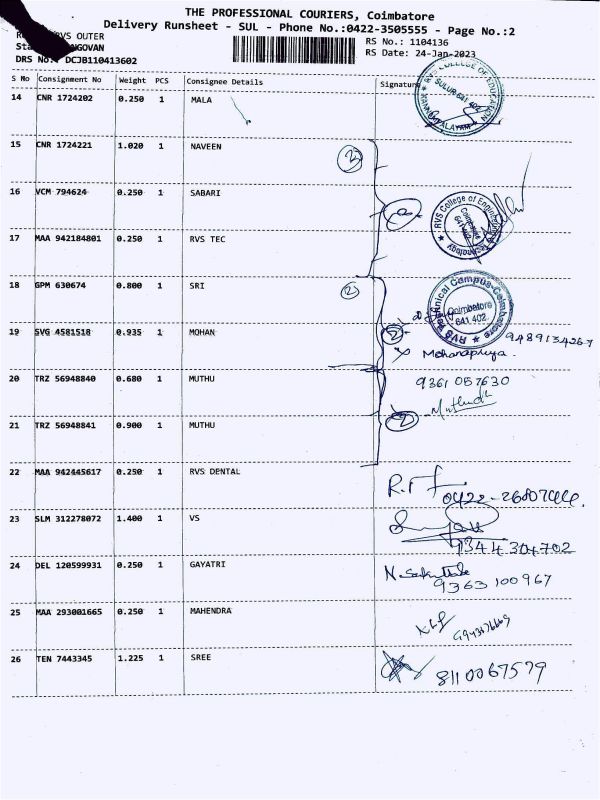 THE PROFESSIONAL COURIERS, Coimbatore
Delivery Runsheet - SUL - Phone No.:0422-3505555 - Page No.:2
RVS OUTER
RS No.: 1104136
RS Date: 24-Jan-2023
DRS No.: DCJB110413602
S No Consignment No Weight PCS Consignee Details Signature
14 CNR 1724202 0.250 1 MALA
RVS COLLEGE OF EDUCATION
SULUR 641 402
15 CNR 1724221 1.020 1 NAVEEN
2
16 VCM 794624 0.250 1 SABARI
RVS College of Engineering
Technology
Coimbatore
641 402
17 MAA 942184801 0.250 1 RVS TEC
18 GPM 630674 0.800 1 SRI
2
RVS Technical Campus-Coimbatore
Coimbatore
641 402
19 SVG 4581518 0.935 1 MOHAN
2
Mohanapriya
20 TRZ 56948840 0.680 1 MUTHU
9361 057630
21 TRZ 56948841 0.900 1 MUTHU
2
22 MAA 942445617 0.250 1 RVS DENTAL
23 SLM 312278072 1.400 1 VS
9344 304702
24 DEL 120599931 0.250 1 GAYATRI
9363 100967
25 MAA 293001665 0.250 1 MAHENDRA
26 TEN 7443345 1.225 1 SREE
8110067579